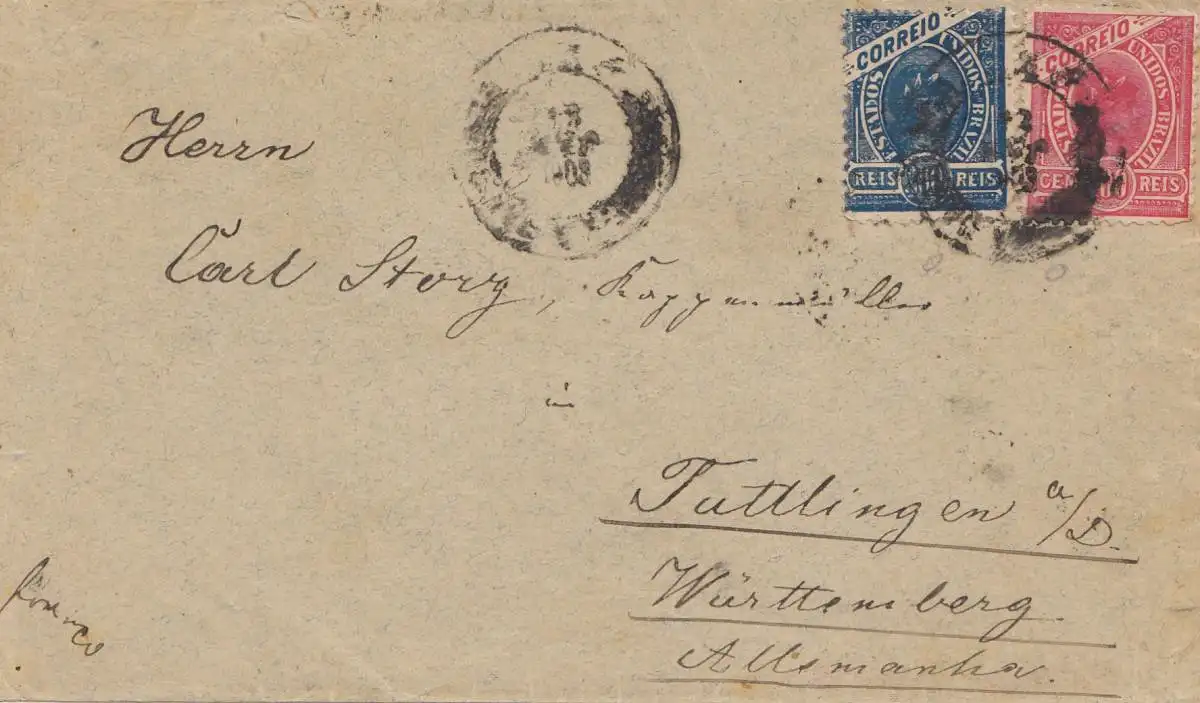 CORREIO
ESTADOS UNIDOS DO BRAZIL
REIS REIS
CORREIO
ESTADOS UNIDOS DO BRAZIL
CEM REIS
Herrn
Carl Storz, Kappenmüller
in
Tuttlingen a/D.
Württemberg
Allemanha.
franco